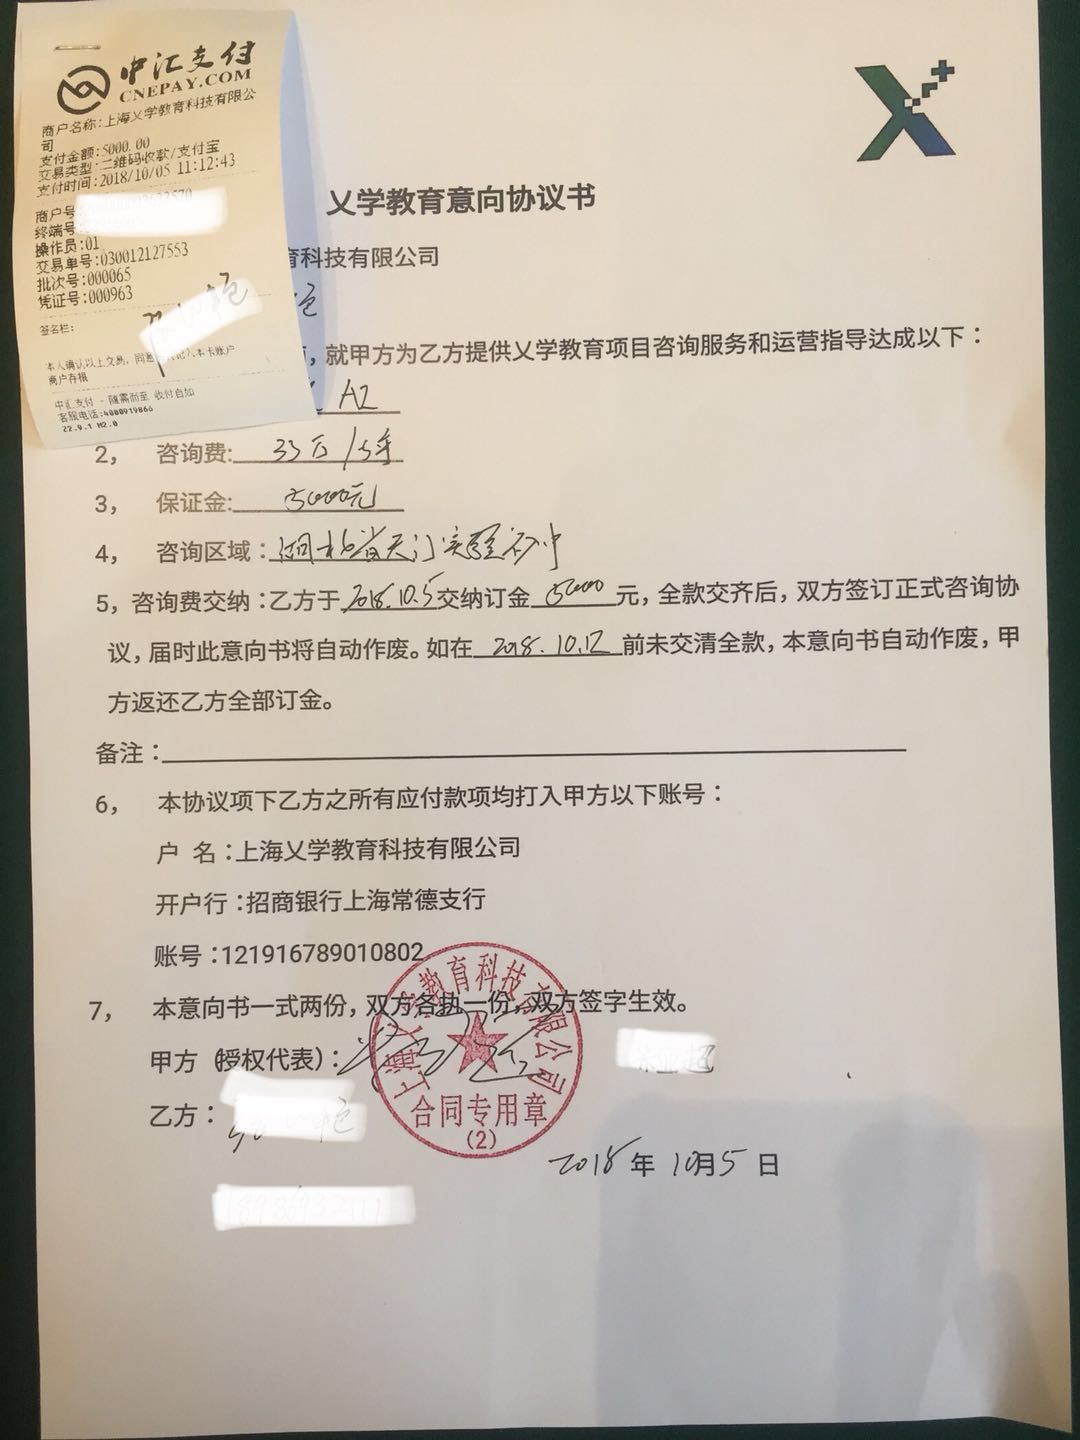 中汇支付
CNEPAY.COM
商户名称:上海乂学教育科技有限公
司
支付金额:5000.00
交易类型:二维码收款/支付宝
支付时间:2018/10/05 11:12:43
商户号
终端号
操作员:01
交易单号:030012127553
批次号:000065
凭证号:000963
签名栏:
本人确认以上交易,同意 记入本卡账户
商户存根
中汇支付 - 随需而至 收付自如
客服电话:4000919066
22.9.1 M2.0
X
乂学教育意向协议书
育科技有限公司
，就甲方为乙方提供乂学教育项目咨询服务和运营指导达成以下：
A2
2， 咨询费:33万/5年
3， 保证金:5000元
4， 咨询区域：湖北省天门实验初中
5，咨询费交纳：乙方于2018.10.5交纳订金5000元，全款交齐后，双方签订正式咨询协
议，届时此意向书将自动作废。如在2018.10.12前未交清全款，本意向书自动作废，甲
方返还乙方全部订金。
备注：
6， 本协议项下乙方之所有应付款项均打入甲方以下账号：
户 名：上海乂学教育科技有限公司
开户行：招商银行上海常德支行
账号：121916789010802
7， 本意向书一式两份，双方各执一份，双方签字生效。
甲方（授权代表）：
乙方：
上海乂学教育科技有限公司
合同专用章
(2)
2018年10月5日